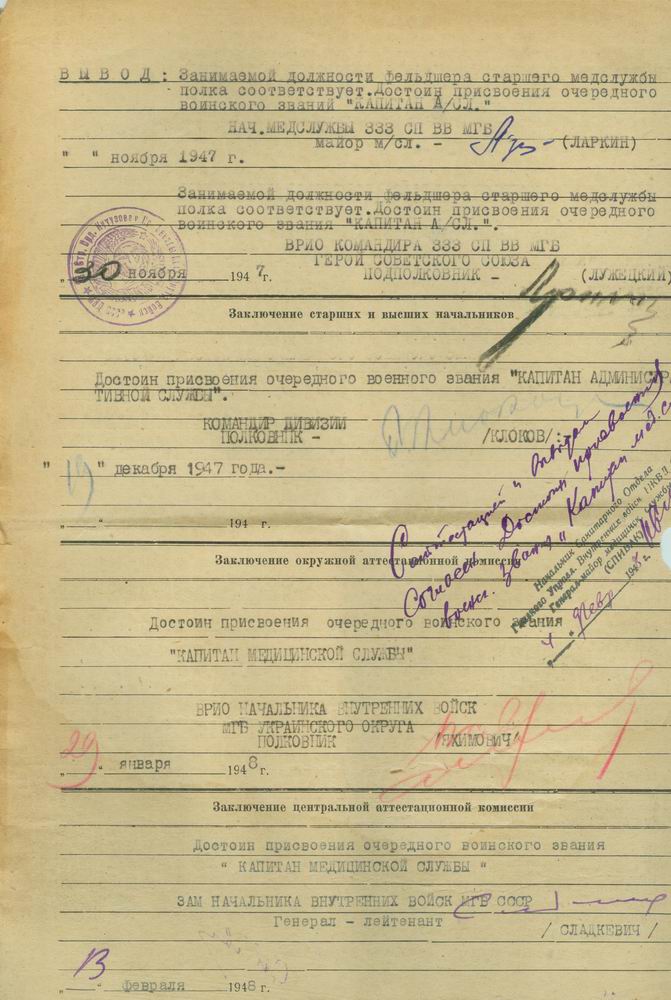 В Ы В О Д : Занимаемой должности фельдшера старшего медслужбы
полка соответствует.Достоин присвоения очередного
воинского званий "КАПИТАН А/СЛ."
НАЧ.МЕДСЛУЖБЫ 333 СП ВВ МГБ
майор м/сл. - (ЛАРКИН)
" " ноября 1947 г.
Занимаемой должности фельдшера старшего медслужбы
полка соответствует.Достоин присвоения очередного
воинского звания "КАПИТАН А/СЛ.".
ВРИО КОМАНДИРА 333 СП ВВ МГБ
ГЕРОЙ СОВЕТСКОГО СОЮЗА
ПОДПОЛКОВНИК - (ЛУЖЕЦКИЙ)
30 ноября 1947 г.
Заключение старших и высших начальников
Достоин присвоения очередного военного звания "КАПИТАН АДМИНИСТРА
ТИВНОЙ СЛУЖБЫ".
КОМАНДИР ДИВИЗИИ
ПОЛКОВНИК - /КЛОКОВ/:
" 19 " декабря 1947 года.-
„ “ 194 г.
С аттестацией и
Согласен. Достоин присвоения
воен. звания „Капитан мед.с
Начальник Санитарного Отдела
Главного Управл. Внутренних войск НКВД
Генерал-майор медицин. службы
(СПИВАК)
4 февр 1948 г.
Заключение окружной аттестационной комиссии
Достоин присвоения очередного воинского звания
"КАПИТАН МЕДИЦИНСКОЙ СЛУЖБЫ"
ВРИО НАЧАЛЬНИКА ВНУТРЕННИХ ВОЙСК
МГБ УКРАИНСКОГО ОКРУГА
ПОЛКОВНИК /ЯКИМОВИЧ/
„ 29 “ января 1948 г.
Заключение центральной аттестационной комиссии
Достоин присвоения очередного воинского звания
" КАПИТАН МЕДИЦИНСКОЙ СЛУЖБЫ "
ЗАМ НАЧАЛЬНИКА ВНУТРЕННИХ ВОЙСК МГБ СССР
Генерал - лейтенант / СЛАДКЕВИЧ /
„ 13 “ февраля 1948 г.